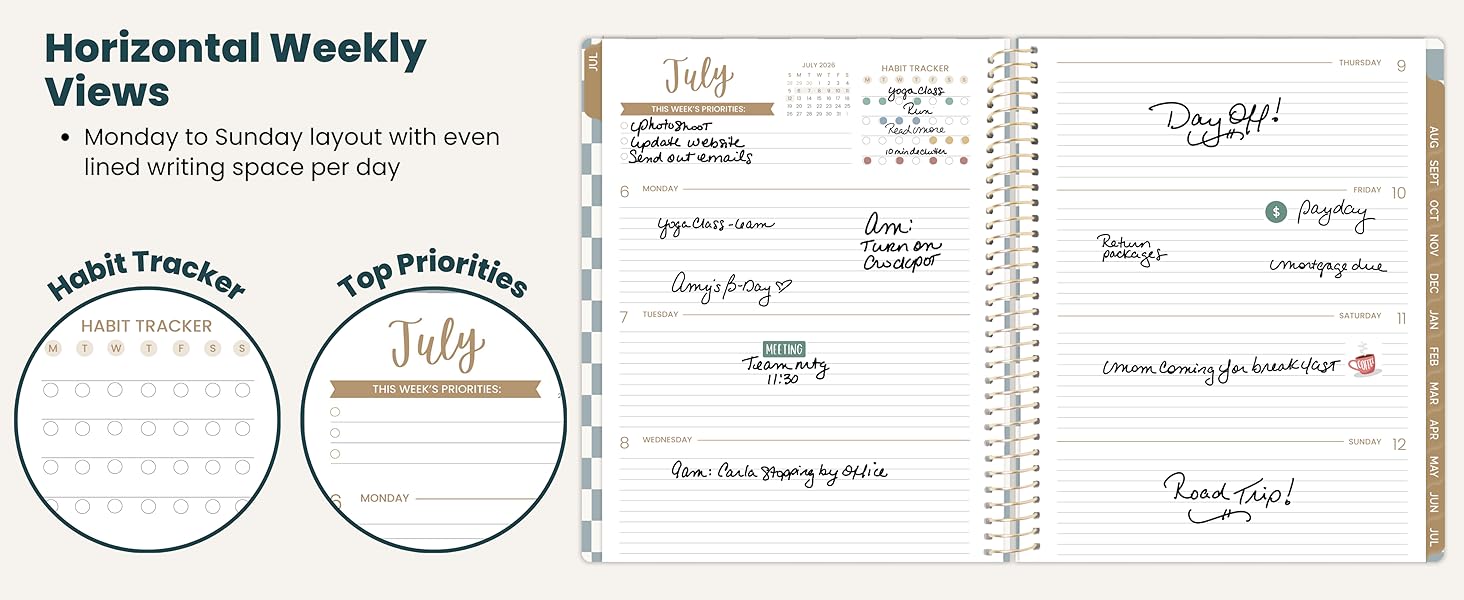 Horizontal Weekly
Views
• Monday to Sunday layout with even
lined writing space per day
Habit Tracker
HABIT TRACKER
M T W T F S S
Top Priorities
July
THIS WEEK'S PRIORITIES:
6 MONDAY
JUL
July
THIS WEEK'S PRIORITIES:
Photoshoot
Update website
Send out emails
JULY 2026
S M T W T F S
HABIT TRACKER
M T W T F S S
Yoga Class
Run
Read more
10 min declutter
6 MONDAY
Yoga Class - 6am
Am:
Turn on
Crockpot
Amy's B-Day ♡
7 TUESDAY
MEETING
Team mtg
11:30
8 WEDNESDAY
9am: Carla Stopping by Office
THURSDAY 9
Day Off!
FRIDAY 10
$ payday
Return
packages
mortgage due
SATURDAY 11
mom coming for breakfast
COFFEE
SUNDAY 12
Road Trip!
AUG
SEPT
OCT
NOV
DEC
JAN
FEB
MAR
APR
MAY
JUN
JUL